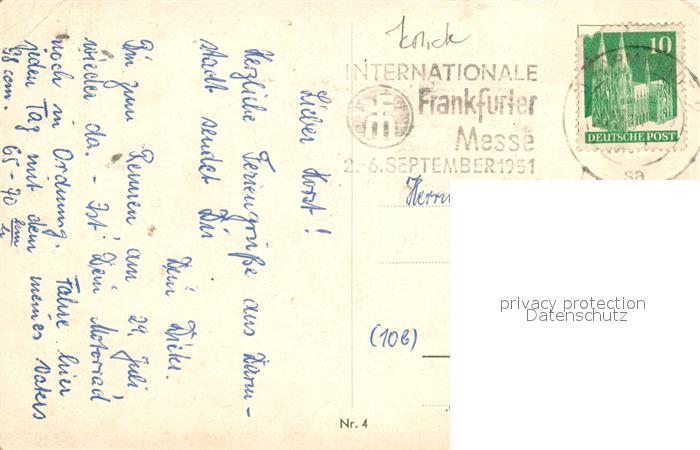 Lieber Horst!
Herzliche Feriengrüße aus Darm-
stadt sendet Dir
Dein Dieter.
Bin zum Rennen am 29. Juli,
wieder da. - Ist Dein Motorrad
noch in Ordnung. Fahre hier
jeden Tag mit dem meines Vaters
98 ccm. 65-70
INTERNATIONALE
Frankfurter
Messe
2.-6. SEPTEMBER 1951
10
DEUTSCHE POST
sa
Herrn
(10b)
Nr. 4
privacy protection
Datenschutz